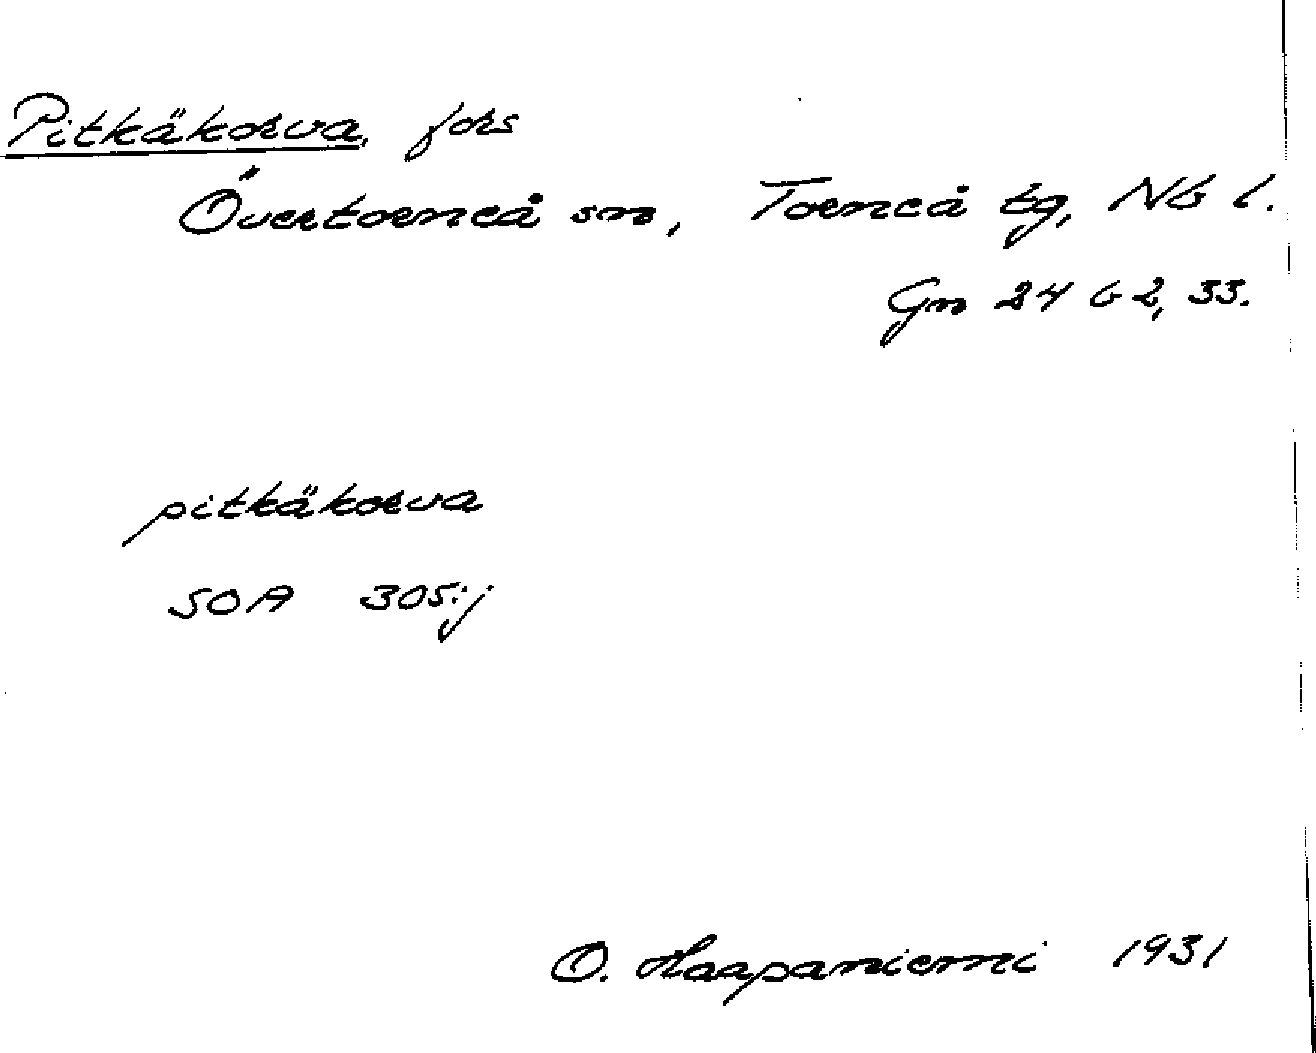 Pitkäkorva, fors
Övertorneå sn, Torneå tg, Nb l.
Gn 24 b 2, 33.
pitkäkorva
SOA 305:j
O. Haapaniemi 1931